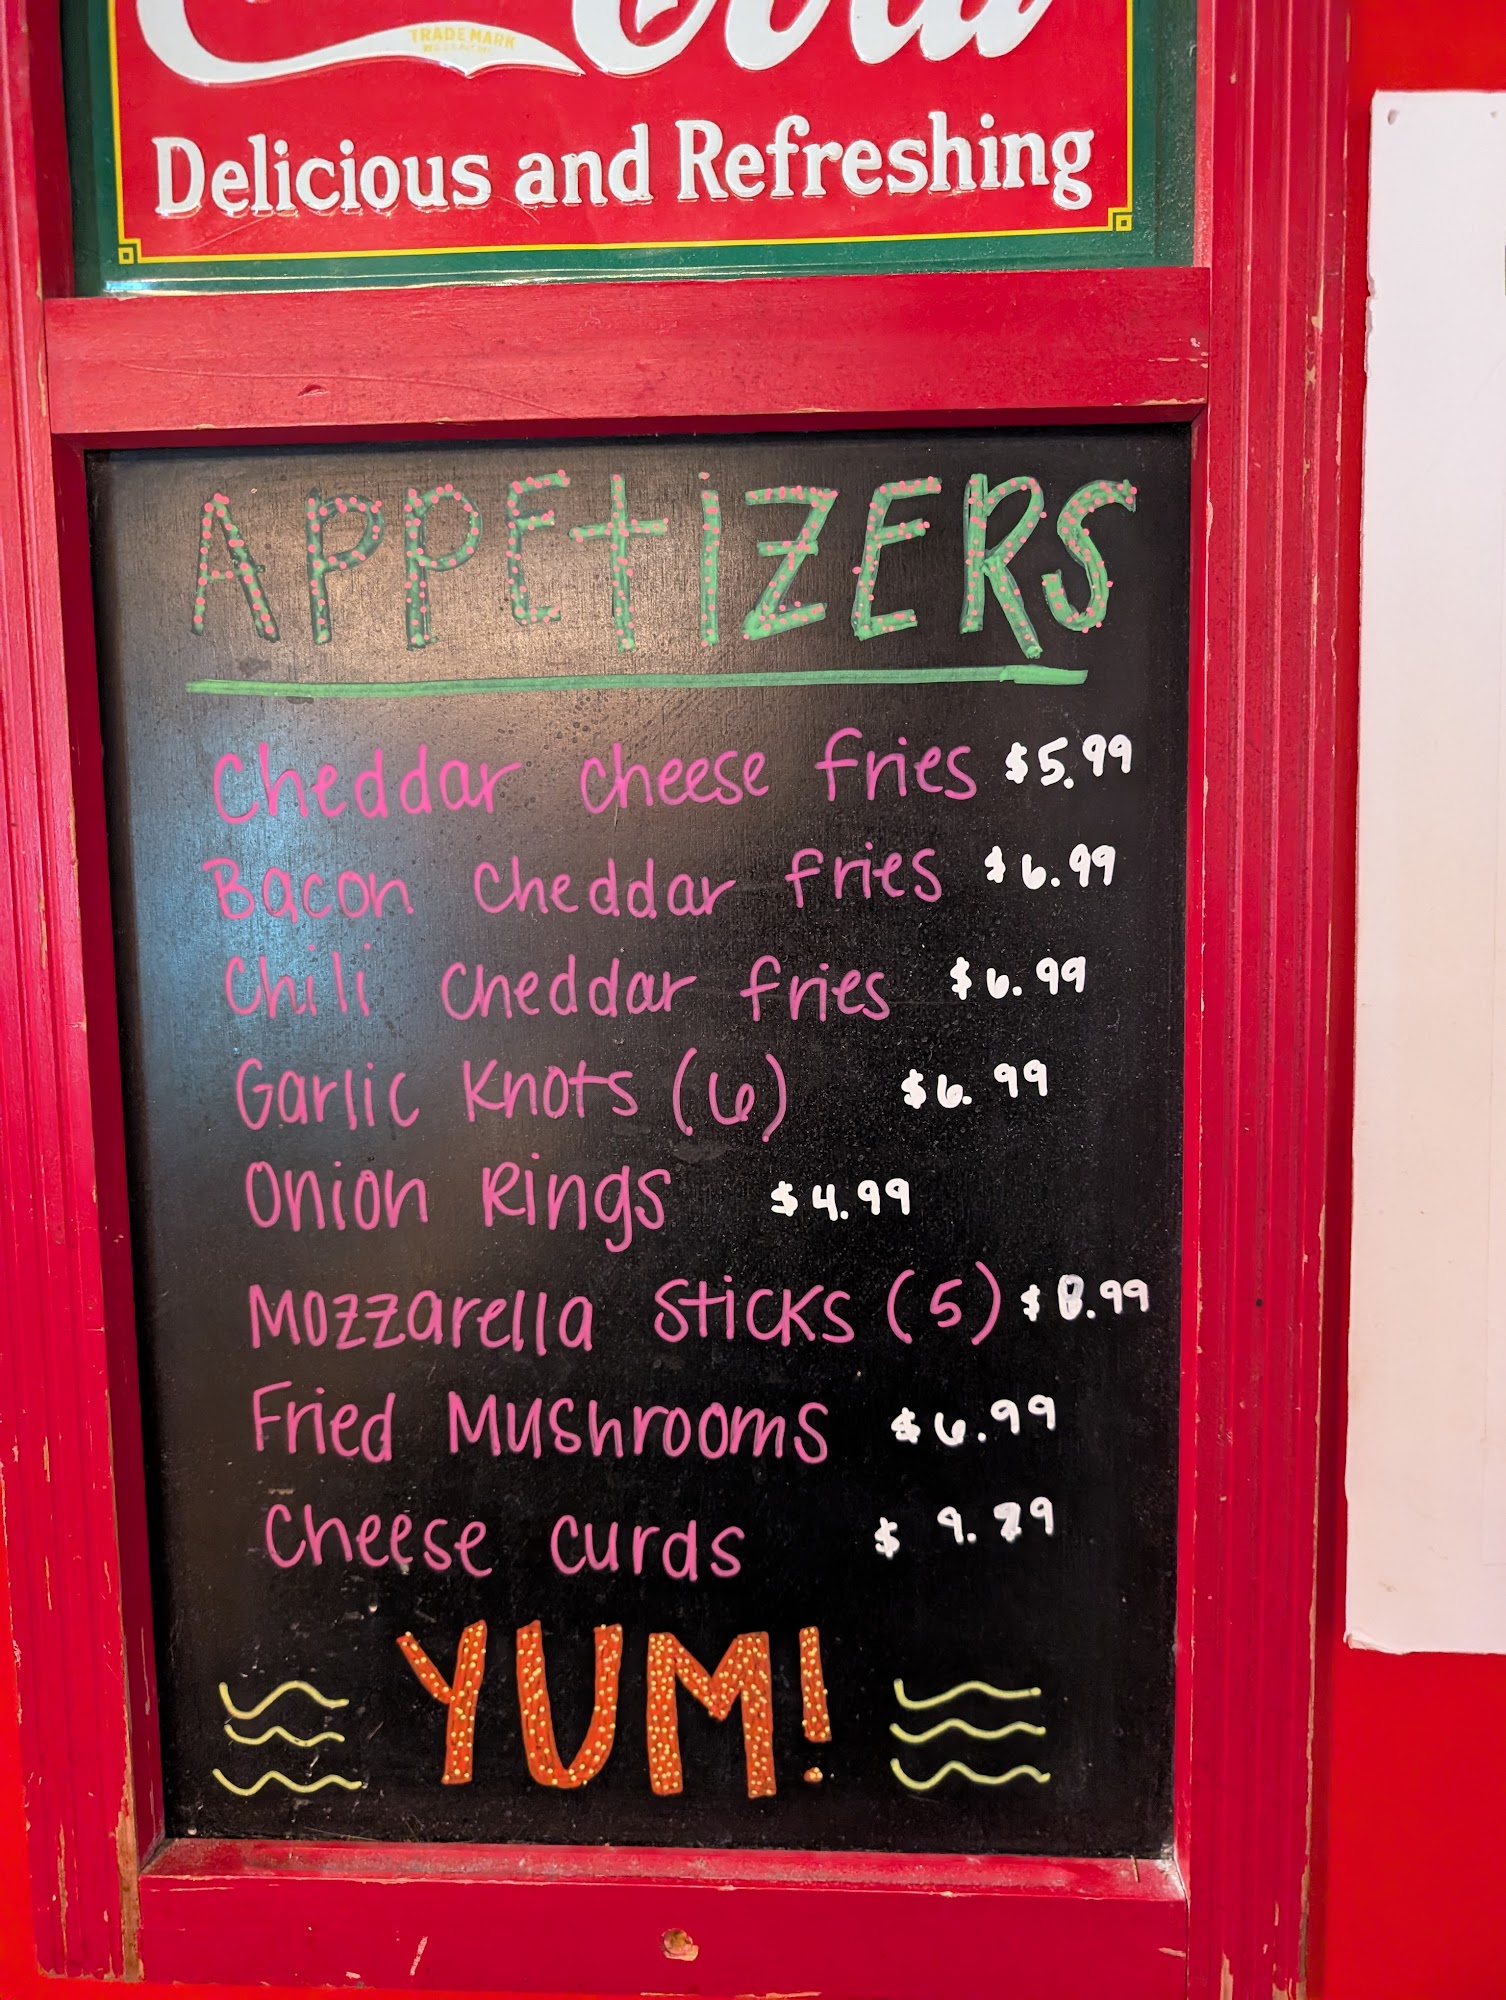 Cola
TRADE MARK
Delicious and Refreshing
APPETIZERS
Cheddar cheese fries $5.99
Bacon cheddar fries $6.99
Chili cheddar fries $6.99
Garlic Knots (6) $6.99
Onion Rings $4.99
Mozzarella sticks (5) $8.99
Fried Mushrooms $6.99
Cheese curds $ 9.
YUM!